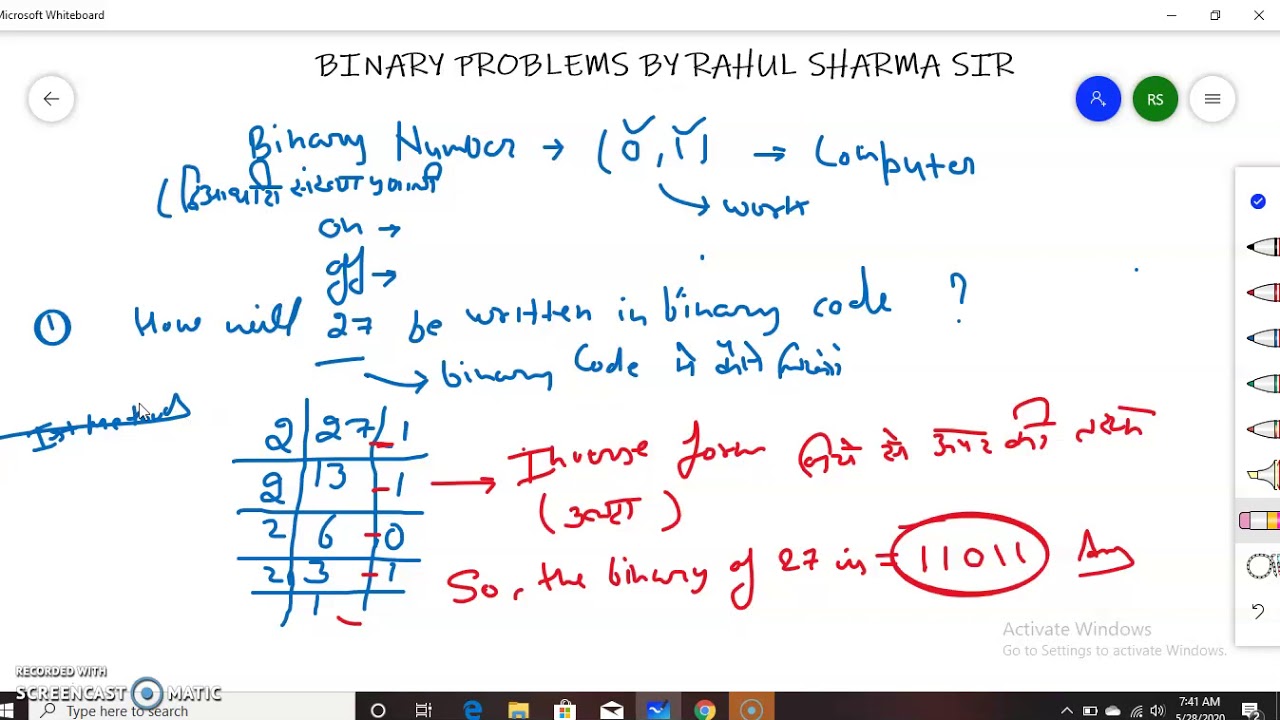 Microsoft Whiteboard
BINARY PROBLEMS BY RAHUL SHARMA SIR
RS
Binary Number → (0, 1) → Computer
→ work
on →
off →
① How will 27 be written in binary code ?
→ binary Code में कैसे लिखेंगे
2 | 27 | 1
2 | 13 - 1
2 | 6 - 0
2 | 3 - 1
1
→ Inverse form नीचे से ऊपर की तरफ
(उल्टा)
So, the binary of 27 is = 11011 Ans
Activate Windows
Go to Settings to activate Windows.
RECORDED WITH
SCREENCAST MATIC
Type here to search
7:41 AM
5/28/2020